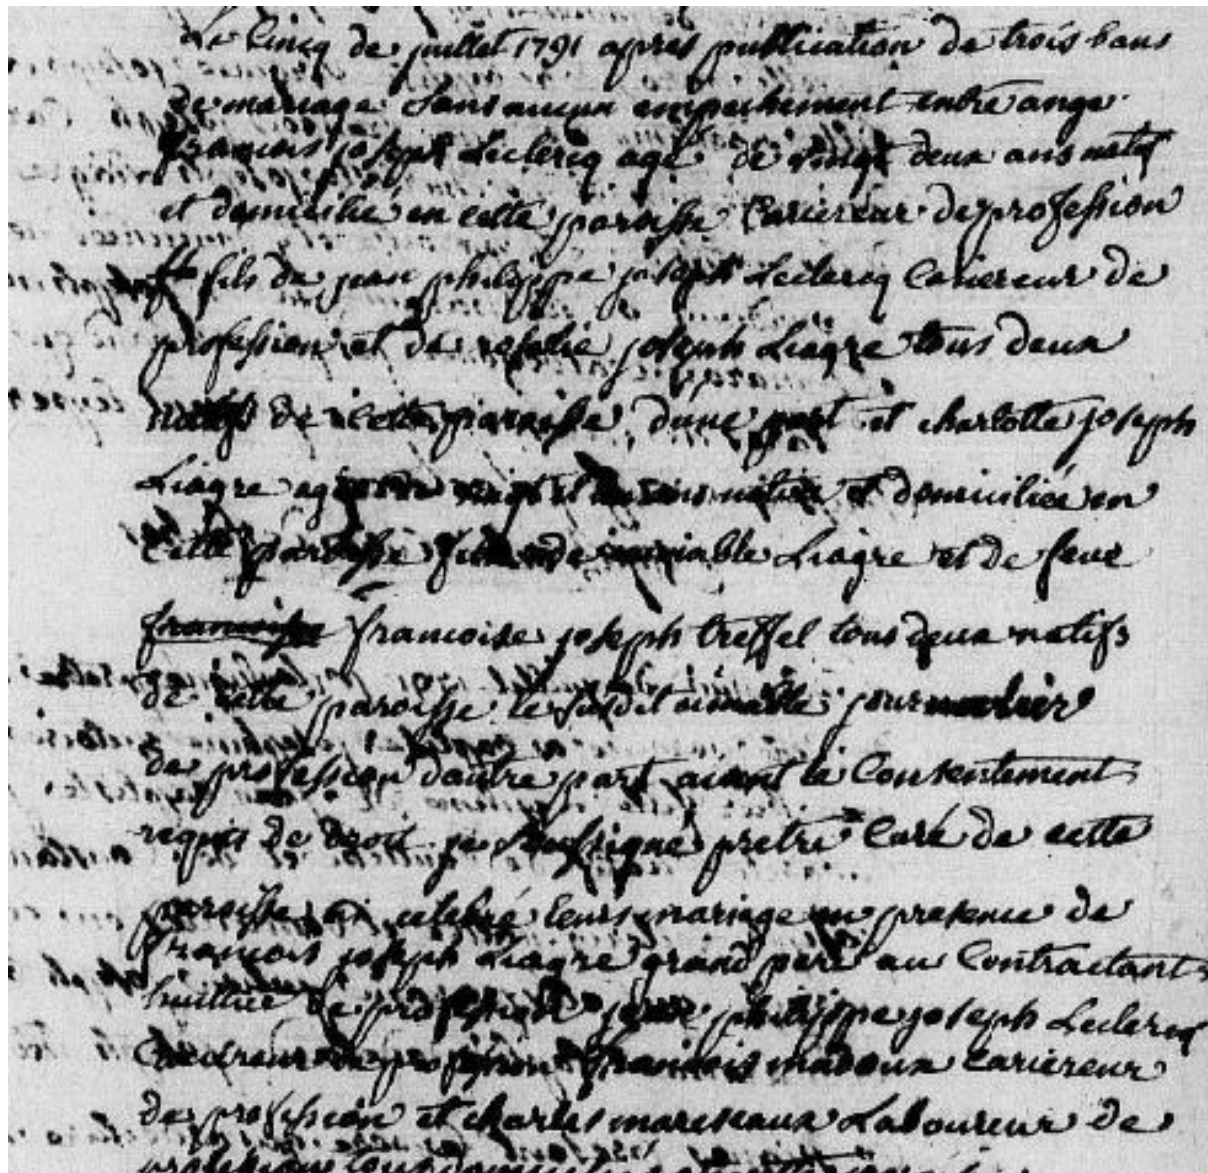 Le Cincq de juillet 1791 apres publication de trois bans
de mariage sans aucun empechement entre ange
françois joseph Leclercq agé de vingt deux ans natif
et domicilié en cette paroisse Cariereur de profession
fils de jean philippe joseph Leclercq Cariereur de
profession et de rosalie joseph Liagre tous deux
natifs de cette paroisse d'une part et charlotte joseph
Liagre agée de vingt et ans native et domiciliée en
cette paroisse fille de aimable Liagre et de feue
francoise joseph treffel tous deux natifs
de cette paroisse le susdit aimable journalier
de profession d'autre part aiant le Consentement
requis de droit je soussigné pretre Curé de cette
paroisse ai celebré leurs mariage en presence de
francois joseph Liagre grand pere au Contractant
de profession jean philippe joseph Leclercq
Cariereur de profession francois madoux Cariereur
de profession et charles mareseaux Laboureur de
profession tous